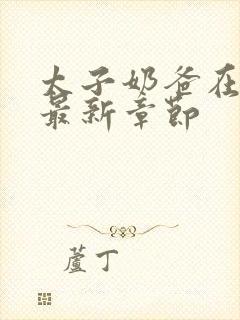 太子奶爸在
最新章节
蘆丁